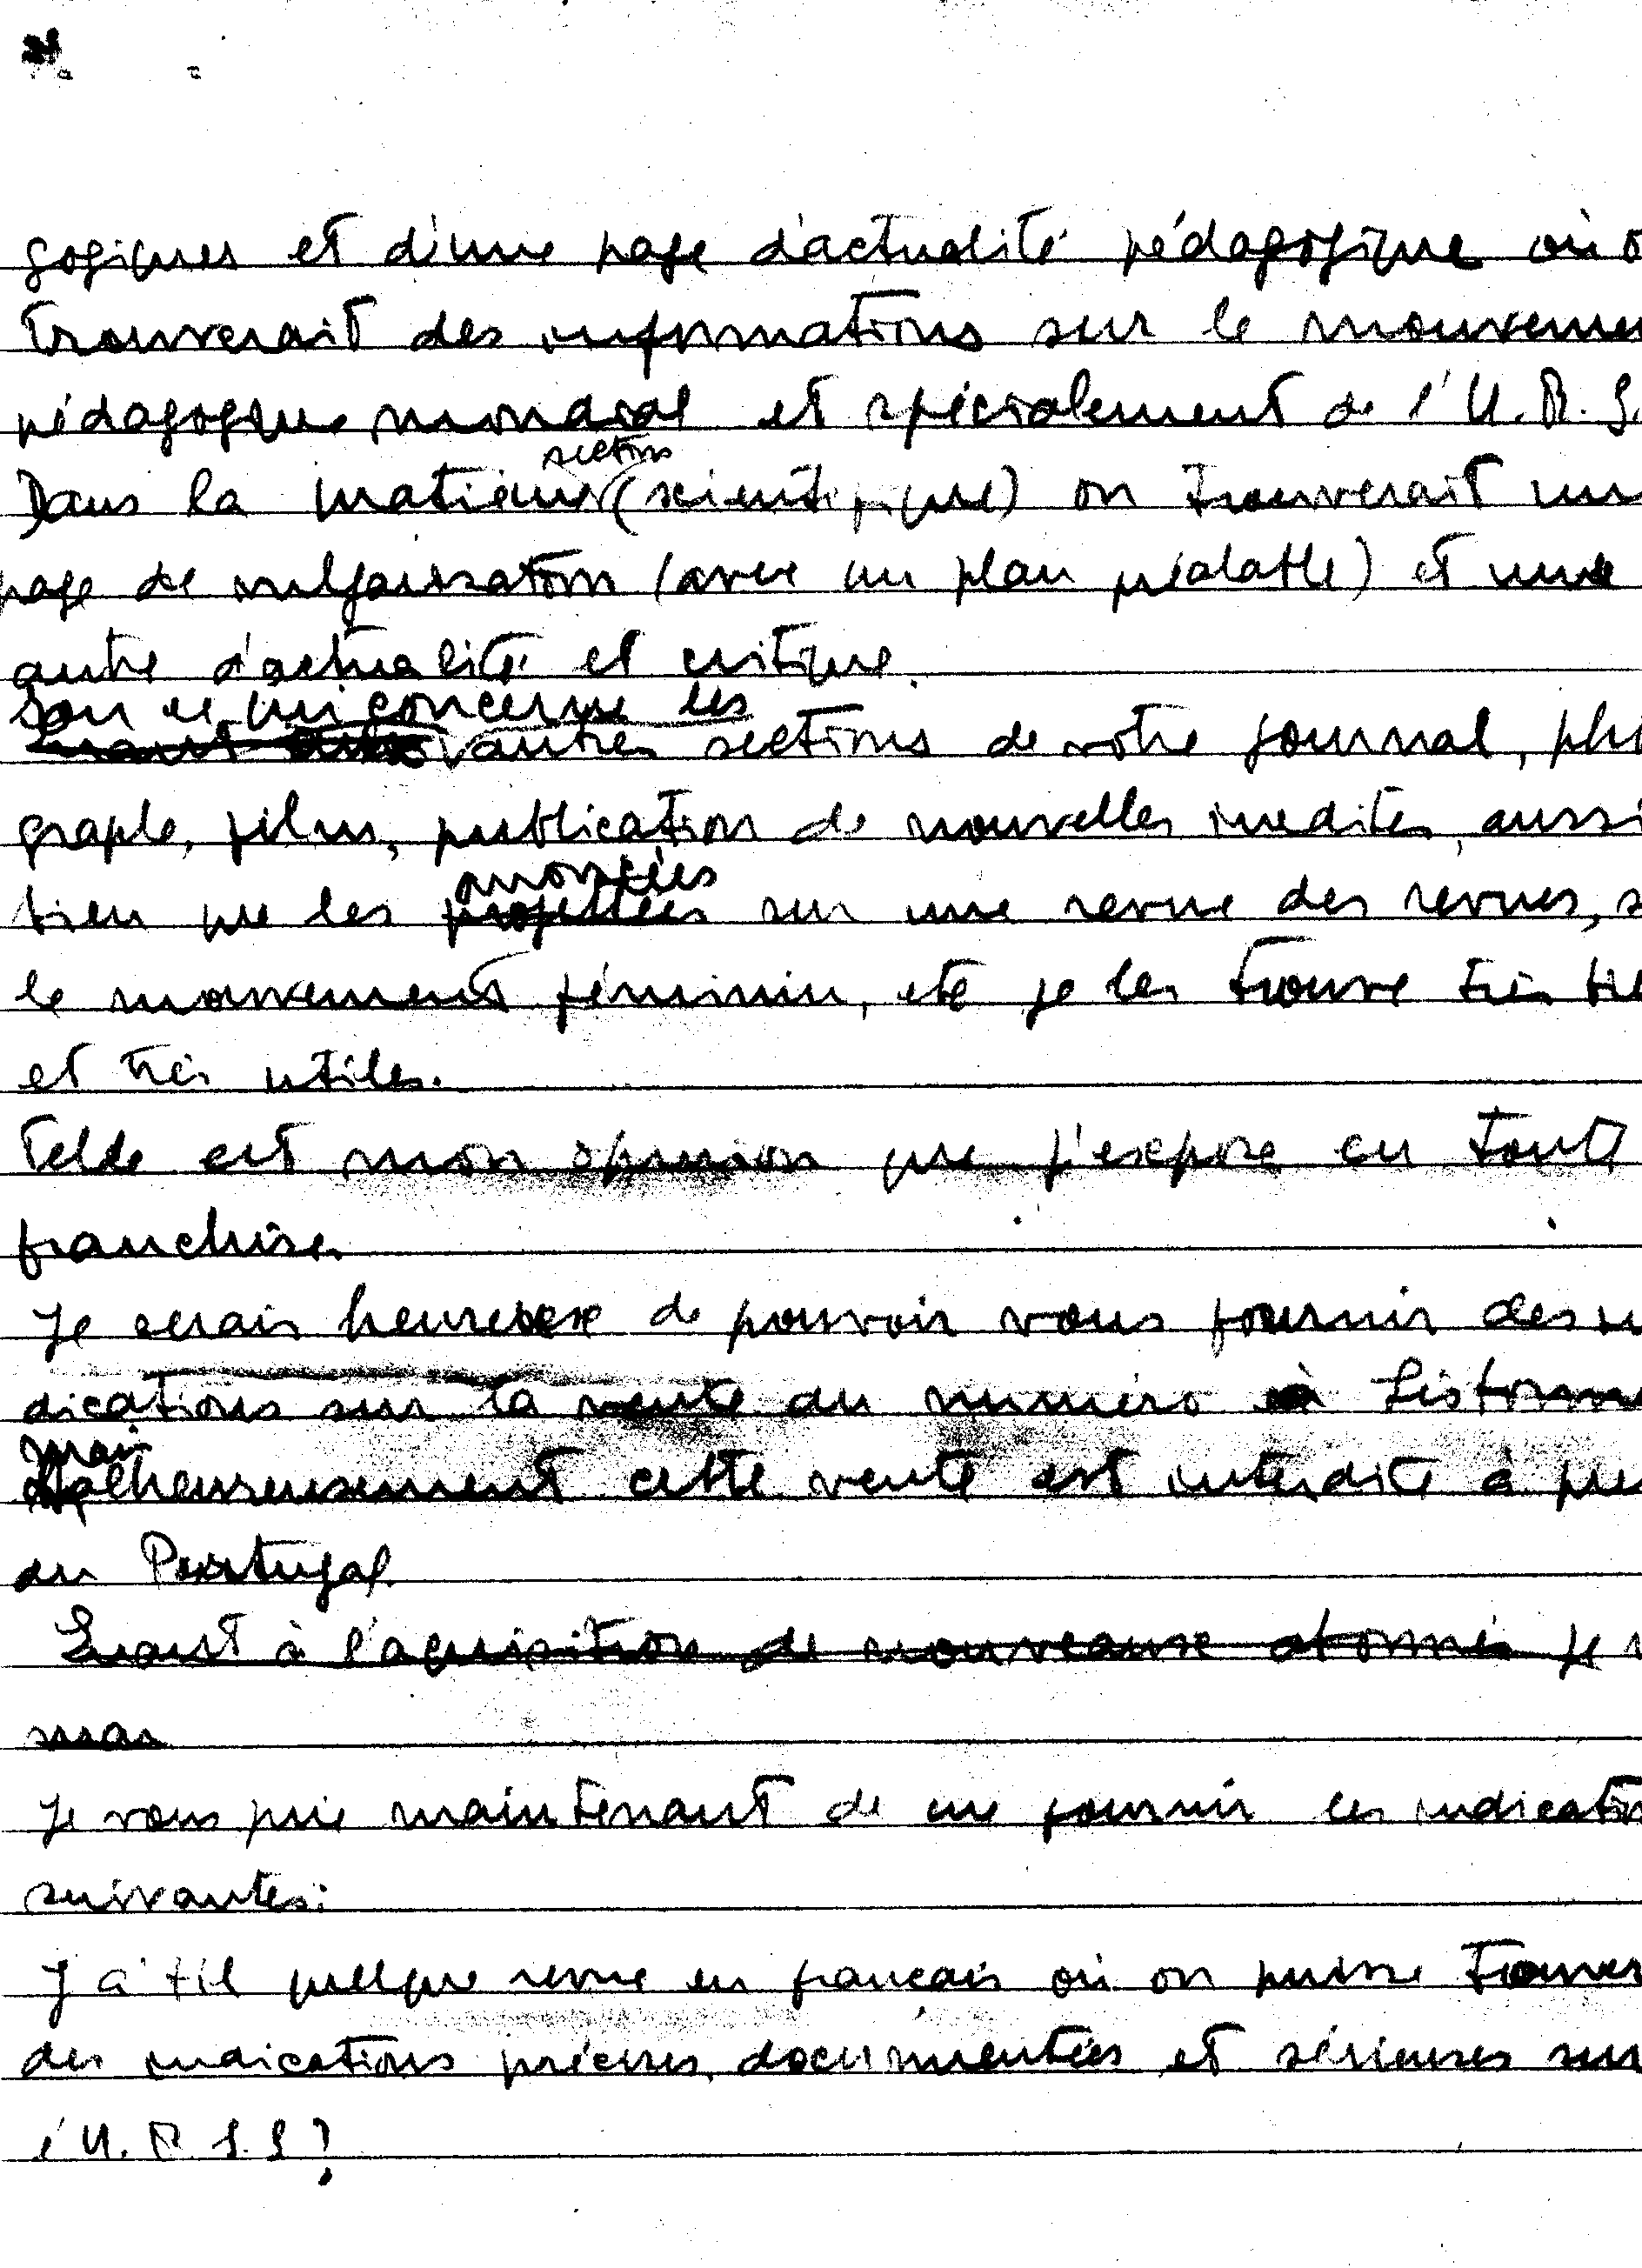 gogiques et d'une page d'actualité pédagogique où o
trouverait des informations sur le mouvemen
pédagogique mondial et spécialement de l'U.R.S.
section
Dans la matière (scientifique) on trouverait un
page de vulgarisation (avec un plan préalable) et une
autre d'actualité et critique.
ce qui concerne les
autres sections de votre journal, pho
graphe, films, publication de nouvelles inedites, aussi
annoncées
bien que les projettées sur une revue des revues, s
le mouvement féminin, etc je les trouve très bie
et très utiles.
Telde est mon opinion que j'expose en toute
franchise.
Je serais heureuse de pouvoir vous fournir des in
dications sur la vente du numéro à Lisbonne
mais
Malheureusement cette vente est interdite à pre
au Portugal.
Quant à l'aquisition de nouveaux abonnés je v
mais
Je vous prie maintenant de me fournir les indication
suivantes:
Y a t il quelque revue en français où on puisse trouver
des indications précises, documentées et sérieuses sur
l'U.R.S.S?